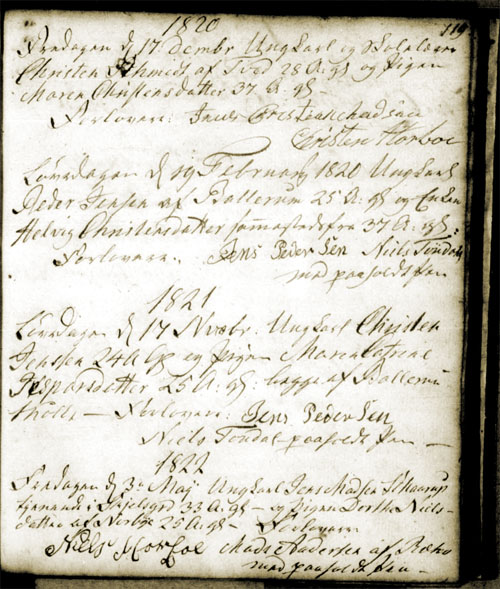 1820
119
Fredagen d 17 Decmbr Ungkarl og Skolelærer
Christen Schmidt af Tved 28 A: gl og Pigen
Maren Christensdatter 37 A: gl
Forlovere: Jens Christian
Christen Horboe
Løverdagen d 19 Februarij 1820 Ungkarl
Peder Jensen af Ballerum 25 A: gl og Enken
Helvig Christensdatter sammestedsfra 37 A: gl:
Forlovere. Jens Peder Sen Niels Tondal
med paaholdt Pen
1821
Løverdagen d 17 Novbr: Ungkarl Christen
Jenssen 24 A gl og Pigen Maren Catrine
25 A: gl: begge af Ballerum
Forlovere: Jens Peder Sen
Niels Tondal paaholdt Pen
1822
Fredagen d: 3 Maj Ungkarl Jens Madsen Skaarup
tjenende i 33 A: gl og Pigen Dorthe Niels-
datter af Nerbye 25 A: gl Forlovere
Niels Horboe Mads Andersen af
med paaholdt Pen